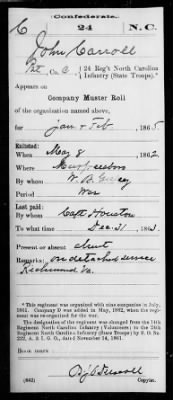 Confederate.
C 24 N.C.
John Carroll
Pvt, Co. C, 24 Reg't North Carolina
Infantry (State Troops).*
Appears on
Company Muster Roll
of the organization named above,
for Jan & Feb, 1865.
Enlisted:
When May 8, 1862.
Where
By whom W. B.
Period War
Last paid:
By whom Capt Houston
To what time Dec. 31, 1863.
Present or absent absent
Remarks: on detached service
Richmond Va.
*This regiment was organized with nine companies in July,
1861. Company D was added in May, 1862, when the regiment
was re-organized for the war.
The designation of the regiment was changed from the 14th
Regiment North Carolina Infantry (Volunteers) to the 24th
Regiment North Carolina Infantry (State Troops) by S. O. No.
222, A. & I. G. O., dated November 14, 1861.
Book mark:
(642)
Copyist.